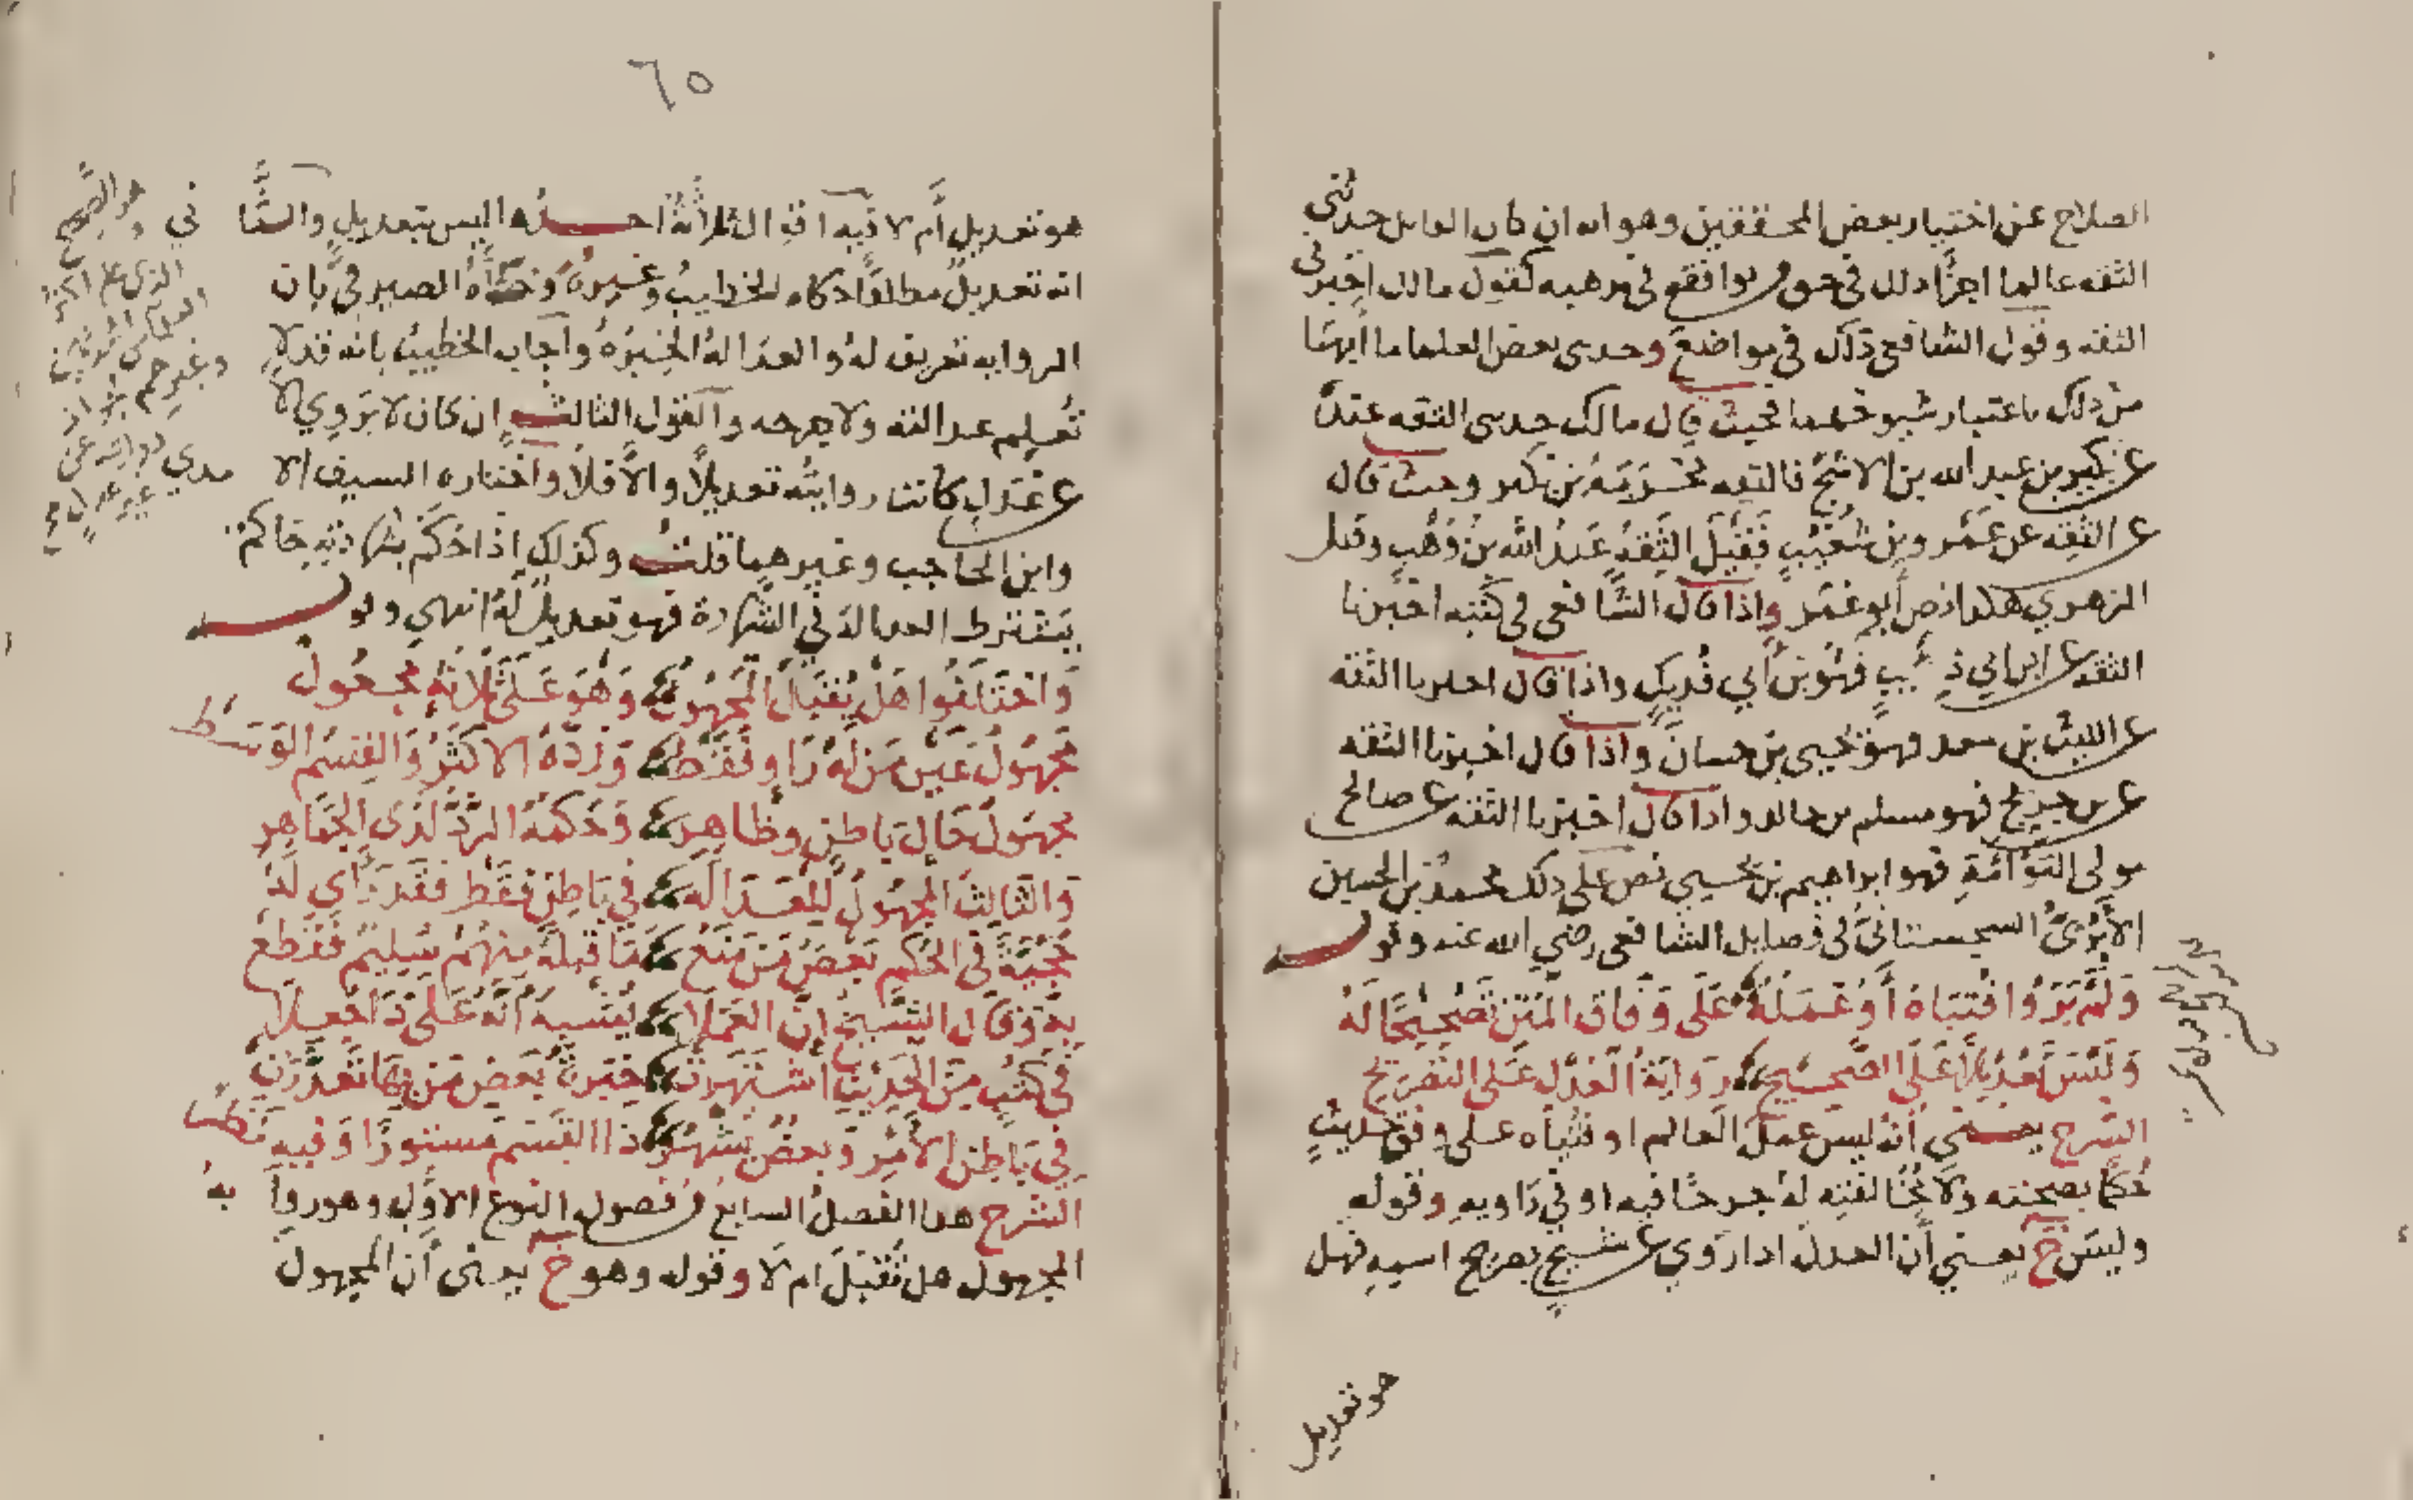 الصلاح عن اختيار بعض المحققين وهو انه ان كان القائل حدثني
الثقة عالما اجزأ ذلك في حق من يوافقه في مذهبه كقول مالك اخبرني
الثقة وقول الشافعي ذلك في مواضع وحدثني بعض العلماء ما ابهما
من ذلك باعتبار شيوخهما فحيث قال مالك حدثني الثقة عندي
عن بكير بن عبد الله بن الاشج فالثقة مخرمة بن بكير وحيث قال
عن الثقة عن عمرو بن شعيب فقيل الثقة عبد الله بن وهب وقيل
الزهري هكذا نص أبو عمر واذا قال الشافعي في كتبه اخبرنا
الثقة عن ابن ابي ذئب فهو بن أبي فديك واذا قال اخبرنا الثقة
عن الليث بن سعد فهو يحيى بن حسان واذا قال اخبرنا الثقة
عن بن جريج فهو مسلم بن خالد واذا قال اخبرنا الثقة عن صالح
مولى التوأمة فهو ابراهيم بن يحيى نص على ذلك محمد بن الحسين
الأبري السجستاني في فضايل الشافعي رضي الله عنه وقوله
ولم يروا افتياه أو عمله على وفاق المتن تصحيحا له
وليس تعديلا على الصحيح رواية العدل على التصريح
الشرح يعني أنه ليس عمل العالم او فتياه على وفق حديث
حكما بصحته ولا مخالفته له جرحا فيه او في راويه وقوله
وليس خ يعني أن العدل اذا روي عن شيخ بصريح اسمه فهل
هو تعديل
٦٥
هو تعديل أم لا فيه اقوال ثلاثة احدها ليس بتعديل والثاني
انه تعديل مطلقا حكاه الخطيب وغيره وخطأه الصيرفي بان
الرواية تعريف له والعدالة الخبرة وأجاب الخطيب بانه قد لا
تعلم عدالته ولا جرحه والقول الثالث ان كان لا يروي الا
عن عدل كانت روايته تعديلا والا فلا واختاره السيف الامدي
وابن الحاجب وغيرهما قلت وكذلك اذا حكم بشهادته حاكم
يشترط العدالة في الشهادة فهو تعديل له انتهى وقوله
واختلفوا هل يقبل المجهول وهو على ثلاثة مجعول
مجهول عين من له راو فقط ورده الاكثر والقسم الوسط
مجهول حال باطن وظاهر وحكمه الرد لدى الجماهر
والثالث المجهول للعدالة في باطن فقط فقد رأى له
حجية في الحكم بعض من منع ما قبله منهم سليم فقطع
به وقال الشيخ إن العملا يشبه أنه على ذا جعلا
في كتب من الحديث اشتهرت خبرة بعض من بها تعذرت
في باطن الأمر وبعض يشهر ذا القسم مستورا وفيه نظر
الشرح هذا الفصل السابع من فصول النوع الاول وهو رواية
المجهول هل تقبل ام لا وقوله وهو خ يعني أن المجهول
هو الصحيح
الذي عليه اكثر
العلماء
وغيرهم